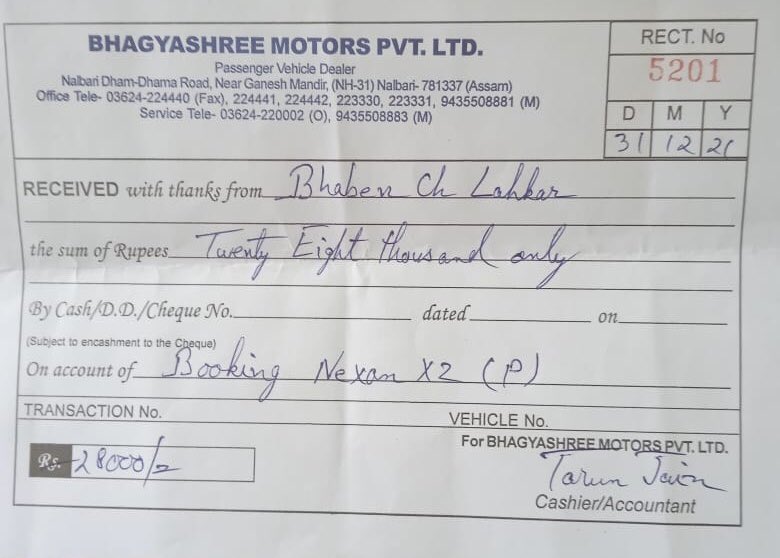 BHAGYASHREE MOTORS PVT. LTD.
Passenger Vehicle Dealer
Nalbari Dham-Dhama Road, Near Ganesh Mandir, (NH-31) Nalbari- 781337 (Assam)
Office Tele- 03624-224440 (Fax), 224441, 224442, 223330, 223331, 9435508881 (M)
Service Tele- 03624-220002 (O), 9435508883 (M)
RECT. No
5201
D M Y
31 12 21
RECEIVED with thanks from Bhaben Ch Lahkar
the sum of Rupees Twenty Eight thousand only
By Cash/D.D./Cheque No. dated on
(Subject to encashment to the Cheque)
On account of Booking Nexan X2 (P)
TRANSACTION No. VEHICLE No.
For BHAGYASHREE MOTORS PVT. LTD.
Rs. 28000/=
Tarun Jain
Cashier/Accountant